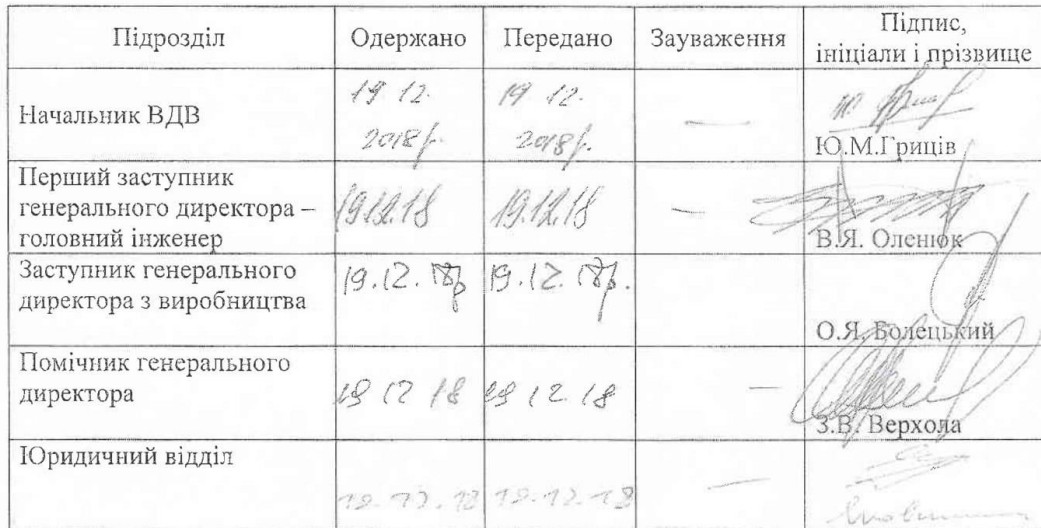 Підрозділ Одержано Передано Зауваження Підпис,
ініціали і прізвище
Начальник ВДВ 19 12. 19 12.
2018р. 2018р.
Ю.М.Гриців
Перший заступник
генерального директора – 19.12.18 19.12.18
головний інженер В.Я. Оленюк
Заступник генерального 19.12.18р 19.12.18р.
директора з виробництва
О.Я. Болецький
Помічник генерального
директора 19 12 18 19 12 18
З.В. Верхола
Юридичний відділ
19.12.18 19.12.18